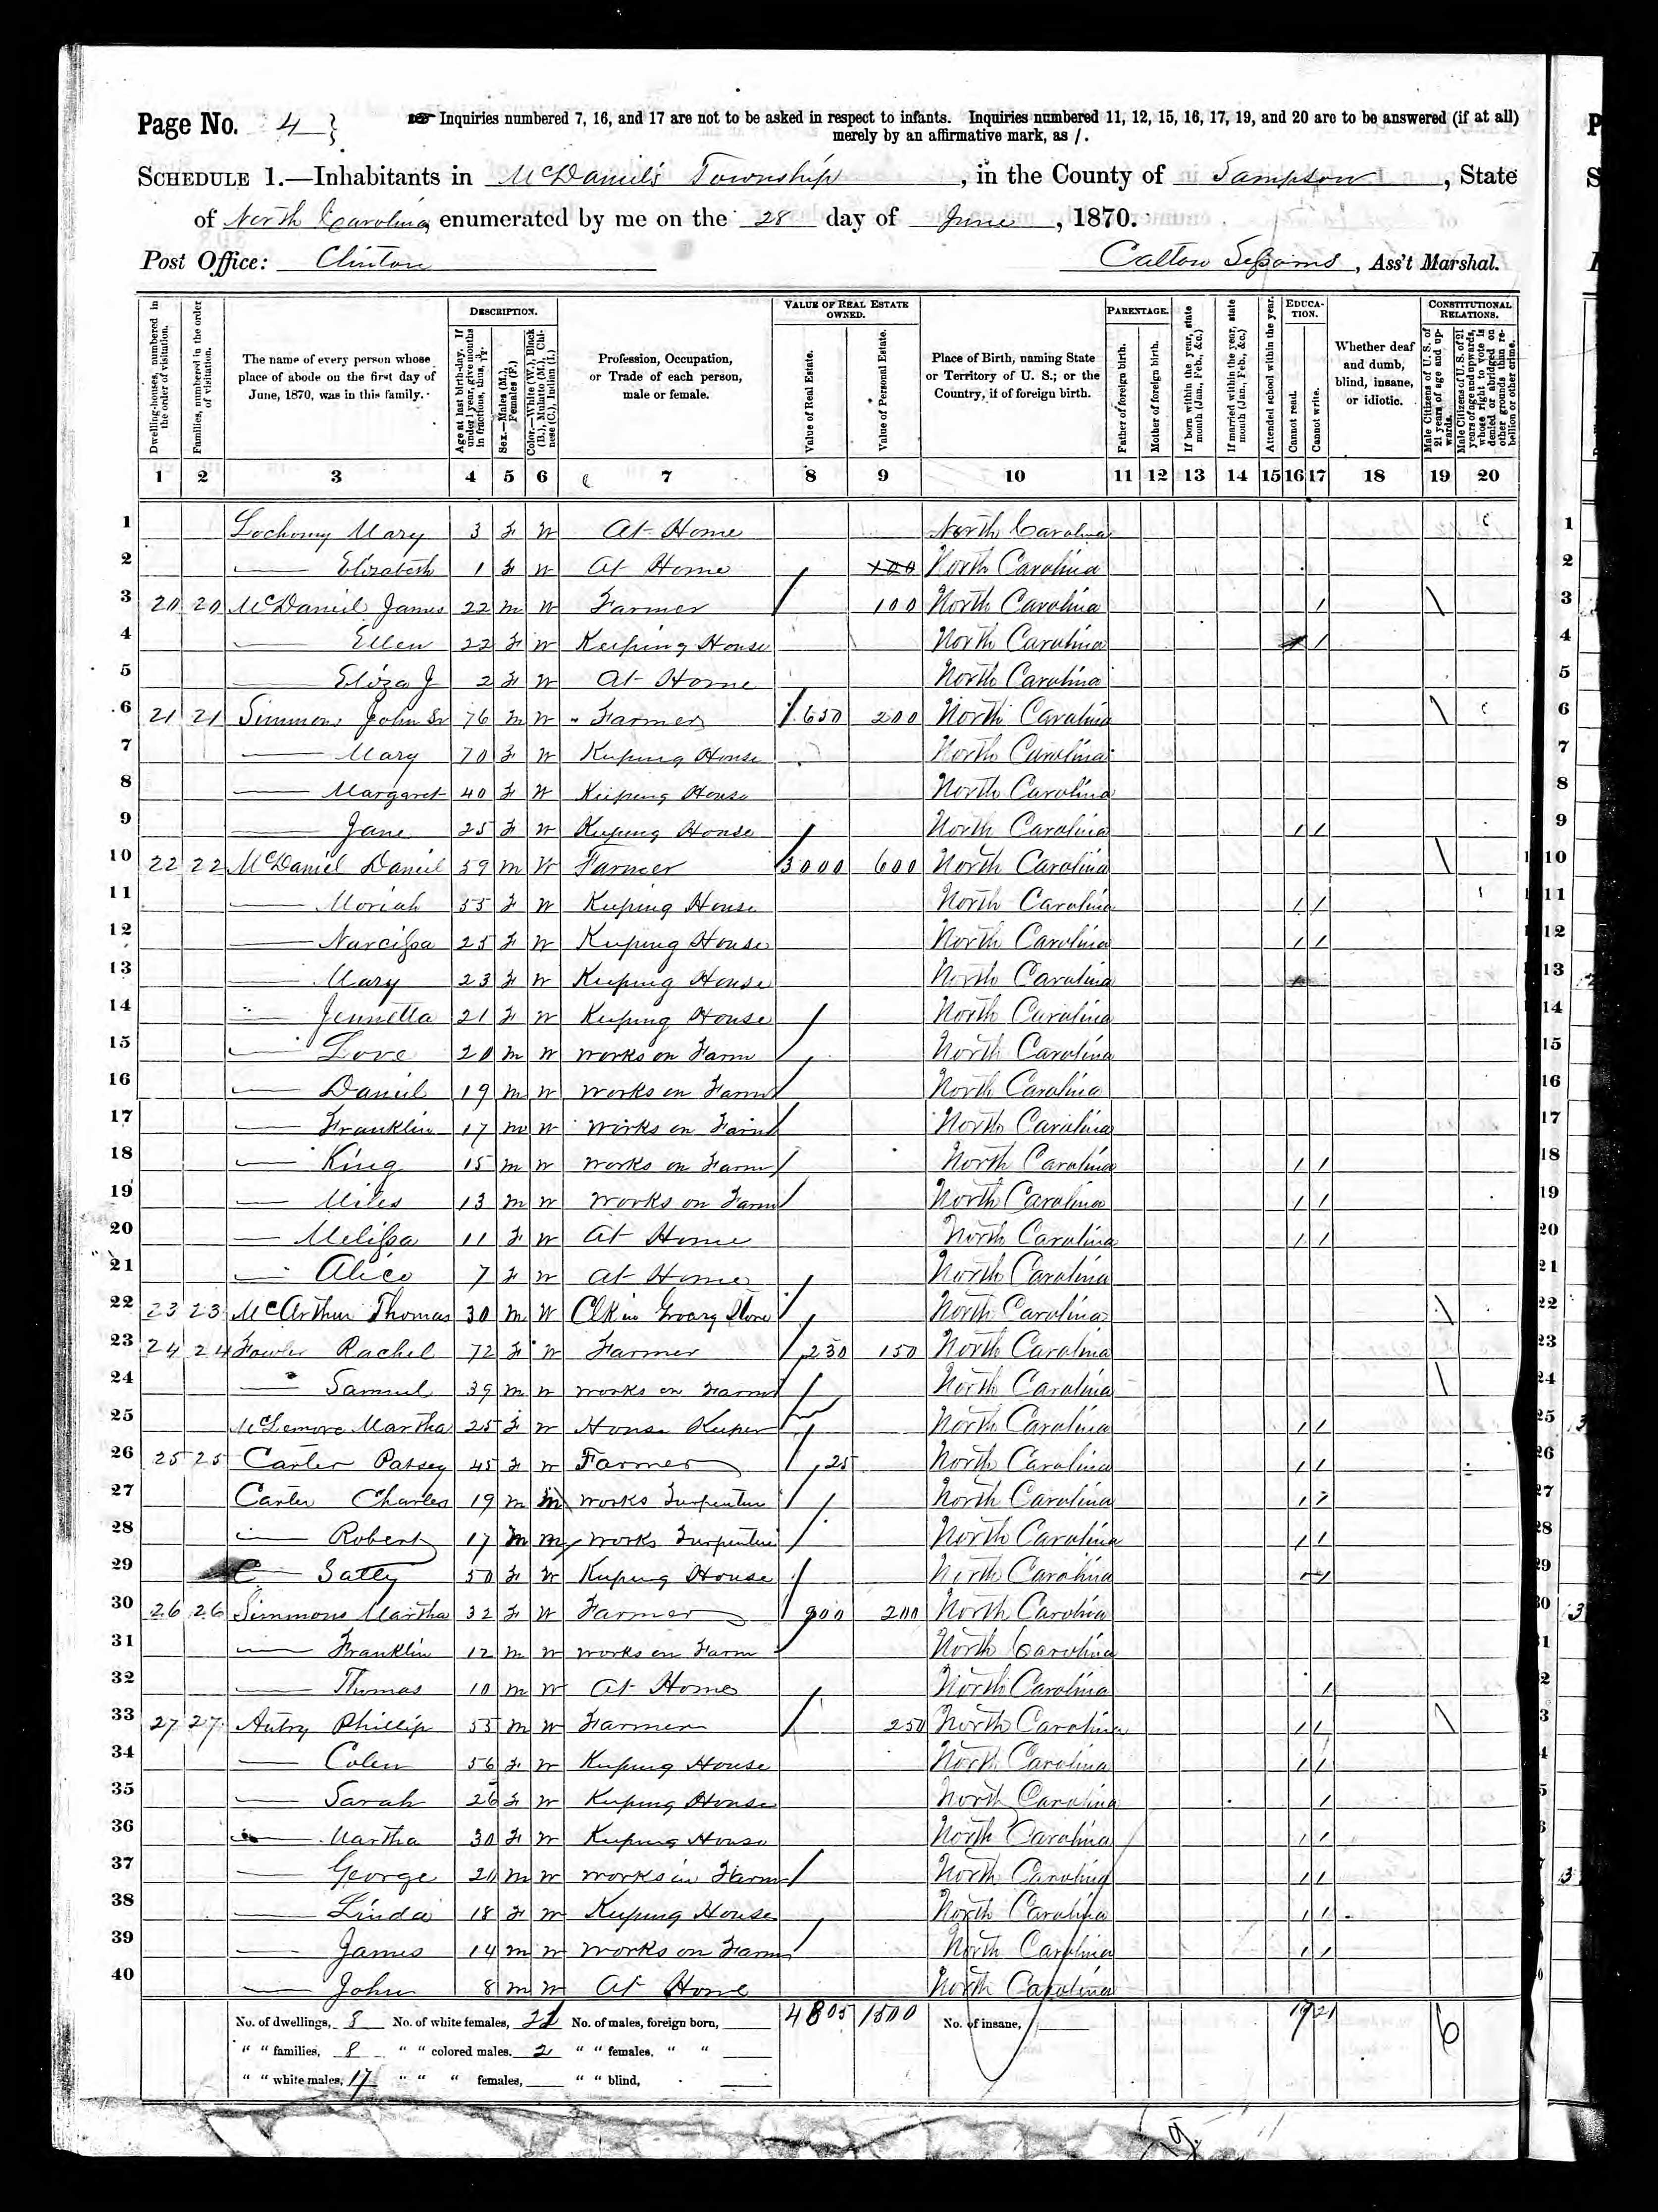 Page No. 4
Inquiries numbered 7, 16, and 17 are not to be asked in respect to infants. Inquiries numbered 11, 12, 15, 16, 17, 19, and 20 are to be answered (if at all)
merely by an affirmative mark, as /.
SCHEDULE 1.—Inhabitants in McDaniel's Township, in the County of Sampson, State
of North Carolina, enumerated by me on the 28 day of June, 1870.
Post Office: Clinton
Ass't Marshal.
Dwelling-houses, numbered in the order of visitation.
Families, numbered in the order of visitation.
The name of every person whose place of abode on the first day of June, 1870, was in this family.
DESCRIPTION.
Age at last birth-day. If under 1 year, give months in fractions, thus, 3/12.
Sex.—Males (M.), Females (F.)
Color.—White (W.), Black (B.), Mulatto (M.), Chinese (C.), Indian (I.)
Profession, Occupation, or Trade of each person, male or female.
VALUE OF REAL ESTATE OWNED.
Value of Real Estate.
Value of Personal Estate.
Place of Birth, naming State or Territory of U. S.; or the Country, if of foreign birth.
PARENTAGE.
Father of foreign birth.
Mother of foreign birth.
If born within the year, state month (Jan., Feb., &c.)
If married within the year, state month (Jan., Feb., &c.)
Attended school within the year.
EDUCATION.
Cannot read.
Cannot write.
Whether deaf and dumb, blind, insane, or idiotic.
CONSTITUTIONAL RELATIONS.
Male Citizens of U. S. of 21 years of age and upwards.
Male Citizens of U. S. of 21 years of age and upwards, whose right to vote is denied or abridged on other grounds than rebellion or other crime.
1 2 3 4 5 6 7 8 9 10 11 12 13 14 15 16 17 18 19 20
1 Mary 3 F W At Home North Carolina
2 — Elizabeth 1 F W At Home 100 North Carolina
3 20 20 McDaniel James 22 M W Farmer 100 North Carolina / \
4 — Ellen 22 F W Keeping House North Carolina /
5 — Eliza J 2 F W At Home North Carolina
6 21 21 Simmons John Sr 76 M W Farmer 650 200 North Carolina \
7 — Mary 70 F W Keeping House North Carolina
8 — Margaret 40 F W Keeping House North Carolina
9 — Jane 25 F W Keeping House North Carolina / /
10 22 22 McDaniel Daniel 59 M W Farmer 3000 600 North Carolina \
11 — Moriah 55 F W Keeping House North Carolina / /
12 — Narcissa 25 F W Keeping House North Carolina / /
13 — Mary 23 F W Keeping House North Carolina
14 — Jennetta 21 F W Keeping House North Carolina
15 — Love 20 M W Works on Farm North Carolina
16 — Daniel 19 M W Works on Farm North Carolina
17 — Franklin 17 M W Works on Farm North Carolina
18 — King 15 M W Works on Farm North Carolina / /
19 — Miles 13 M W Works on Farm North Carolina / /
20 — Melissa 11 F W At Home North Carolina / /
21 — Alice 7 F W At Home North Carolina
22 23 23 McArthur Thomas 30 M W Clk in Grocry Store North Carolina \
23 24 24 Fowler Rachel 72 F W Farmer 230 150 North Carolina
24 — Samuel 39 M W Works on Farm North Carolina \
25 McLemore Martha 25 F W House Keeper North Carolina / /
26 25 25 Carter Patsey 45 F W Farmer 25 North Carolina / /
27 Carter Charles 19 M M Works Turpentine North Carolina / /
28 — Robert 17 M M Works Turpentine North Carolina / /
29 — Sally 50 F W Keeping House North Carolina / /
30 26 26 Simmons Martha 32 F W Farmer 900 200 North Carolina
31 — Franklin 12 M W Works on Farm North Carolina
32 — Thomas 10 M W At Home North Carolina /
33 27 27 Autry Phillip 55 M W Farmer 250 North Carolina / / \
34 — Colen 56 F W Keeping House North Carolina / /
35 — Sarah 26 F W Keeping House North Carolina /
36 — Martha 30 F W Keeping House North Carolina / /
37 — George 20 M W Works on Farm North Carolina / /
38 — Linda 18 F W Keeping House North Carolina / /
39 — James 14 M W Works on Farm North Carolina / /
40 — John 8 M W At Home North Carolina
No. of dwellings, 8 No. of white females, 21 No. of males, foreign born, 4805 1500 No. of insane, 19 21 6
" " families, 8 " " colored males, 2 " " females, " "
" " white males, 17 " " " females, " " blind,